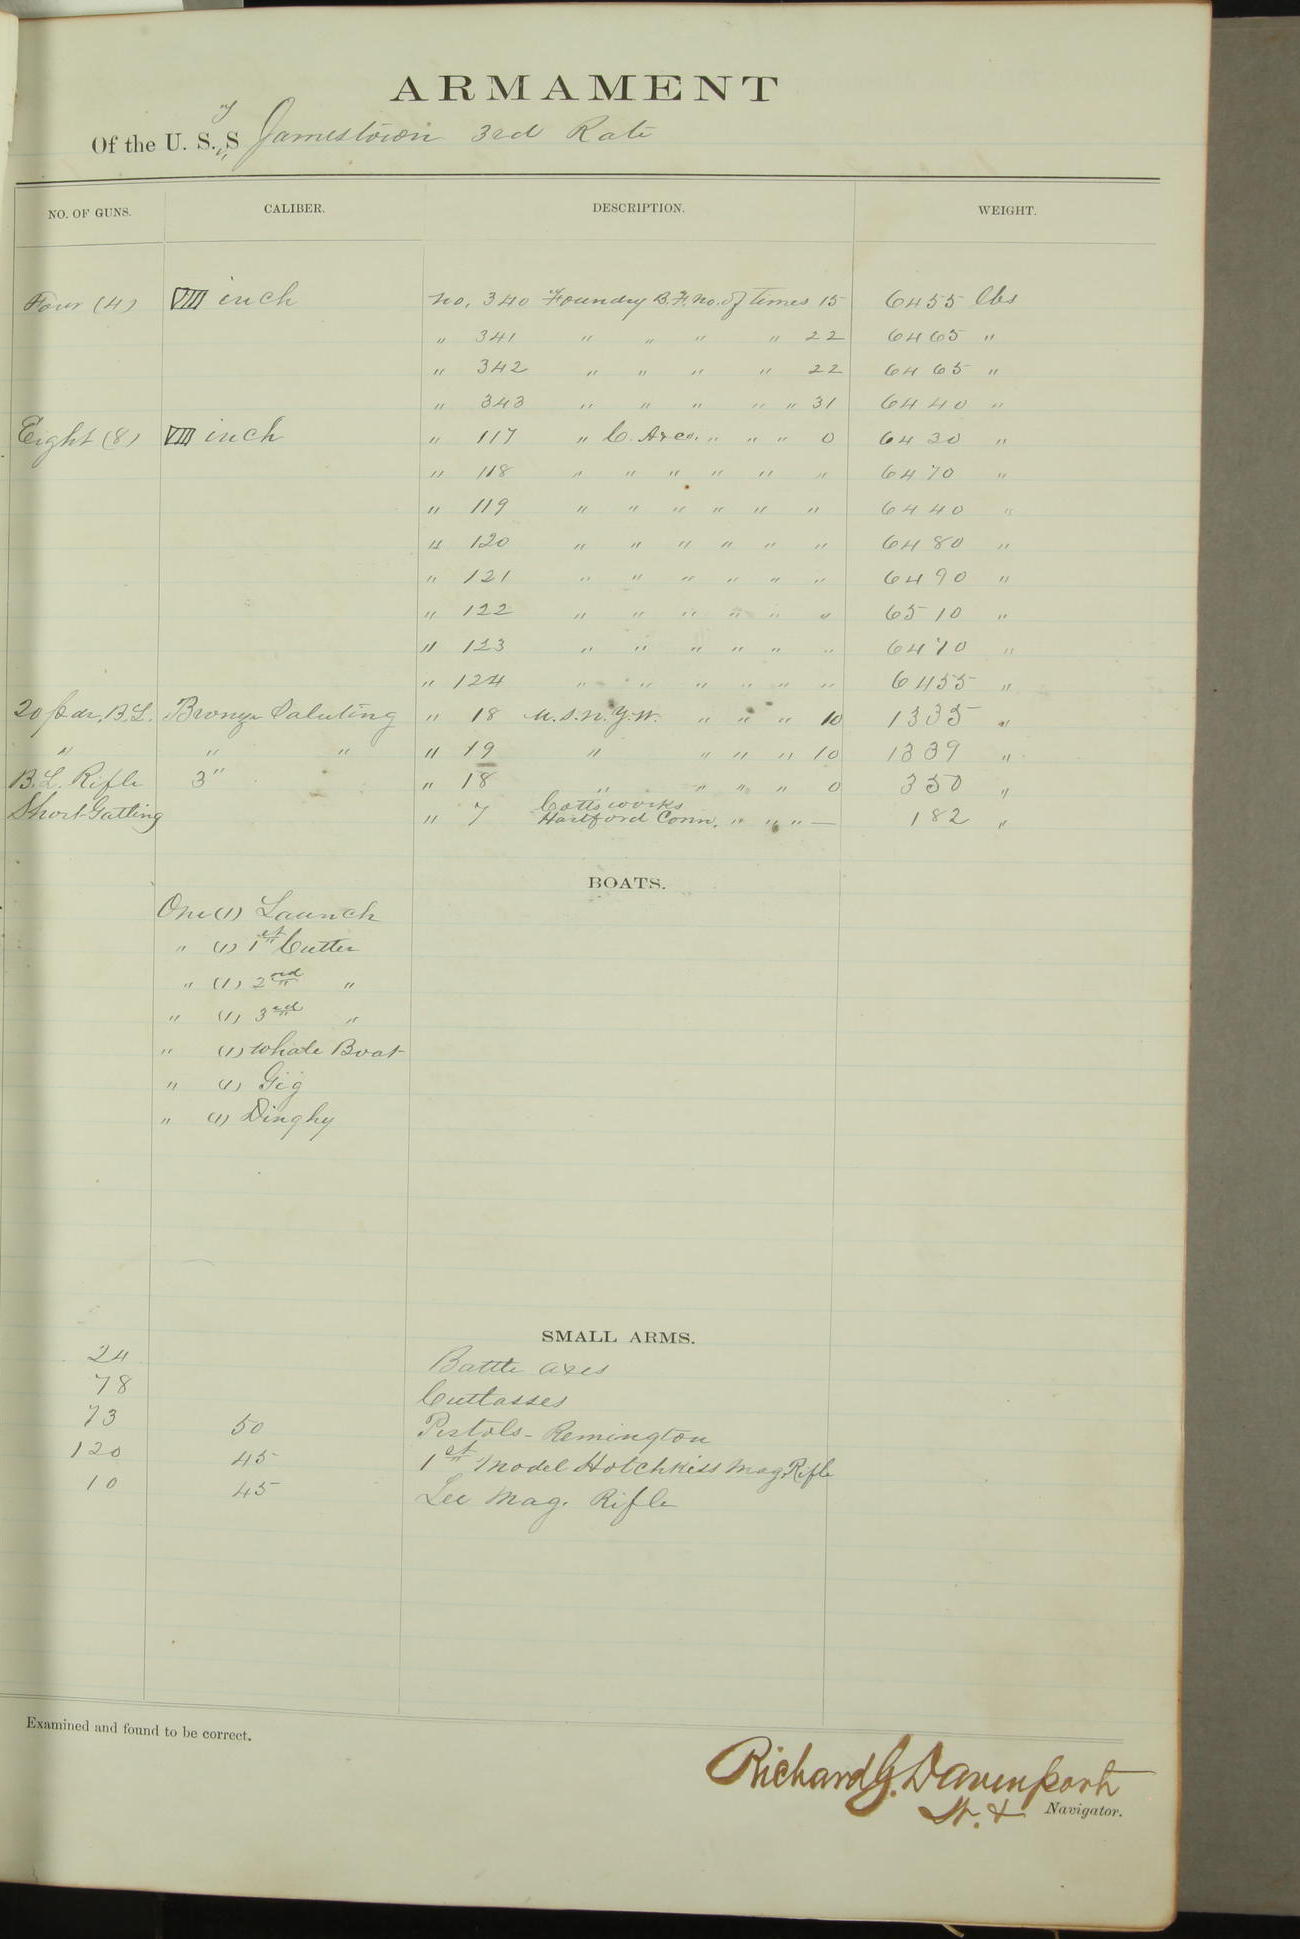 ARMAMENT
Of the U. S. S of Jamestown 3rd Rate
NO. OF GUNS. CALIBER. DESCRIPTION. WEIGHT.
Four (4) VIII inch No. 340 Foundry B.F. No. of times 15 6455 lbs
" 341 " " " " 22 6465 "
" 342 " " " " 22 6465 "
" 343 " " " " " 31 6440 "
Eight (8) VIII inch " 117 " C. A & Co. " " " 0 6430 "
" 118 " " " " " " 6470 "
" 119 " " " " " " 6440 "
" 120 " " " " " " 6480 "
" 121 " " " " " " 6490 "
" 122 " " " " " " 6510 "
" 123 " " " " " " 6470 "
" 124 " " " " " " 6455 "
20 pdr. B.L. Bronze Saluting " 18 U.S.N.Y.W. " " " 10 1335 "
" " " " 19 " " " " 10 1339 "
B.L. Rifle 3" " 18 " " " " 0 350 "
Short Gatling " 7 Colts works Hartford Conn. " " " — 182 "
BOATS.
One (1) Launch
" (1) 1st Cutter
" (1) 2nd "
" (1) 3rd "
" (1) Whale Boat
" (1) Gig
" (1) Dinghy
SMALL ARMS.
24 Battle axes
78 Cutlasses
73 50 Pistols - Remington
120 45 1st Model Hotchkiss Mag. Rifle
10 45 Lee Mag. Rifle
Examined and found to be correct.
Richard G. Davenport
Lt. & Navigator.